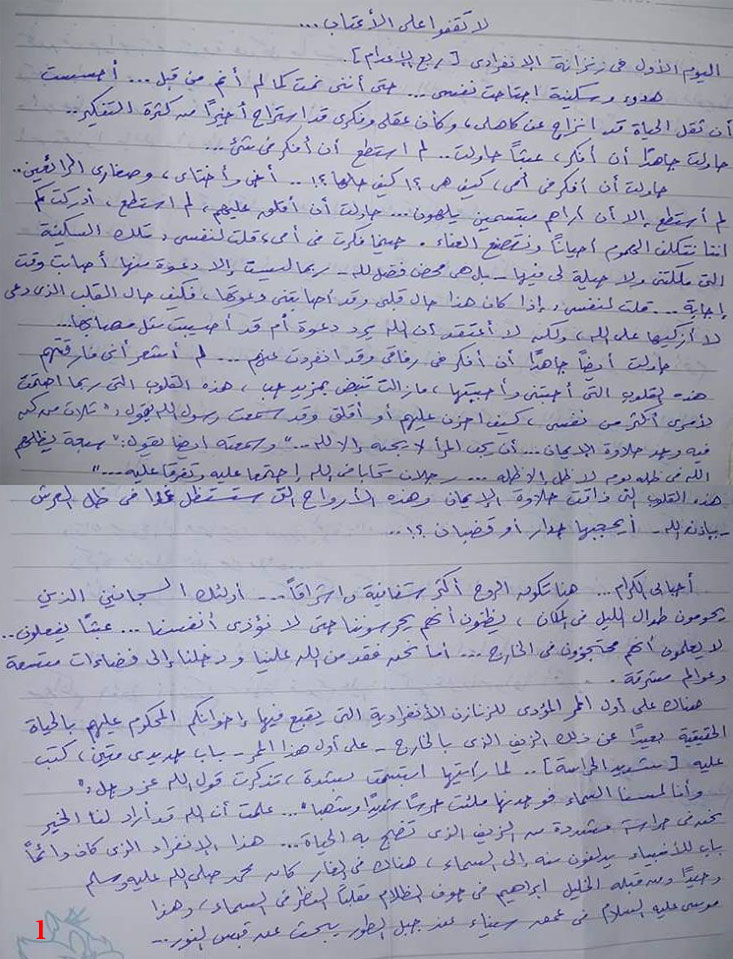 لا تقفوا على الأعتاب ...
اليوم الأول فى زنزانة الإنفرادى [ ربع الإعدام ].
هدوء وسكينة اجتاحت نفسى ... حتى أننى نمت كما لم أنم من قبل ... أحسست
أن ثقل الحياة قد انزاح عن كاهلى، وكأن عقلى وفكرى قد استراح أخيراً من كثرة التفكير..
حاولت جاهداً أن أفكر، عبثاً حاولت.. لم استطع أن أفكر فى شئ ...
حاولت أن أفكر فى أمى، كيف هى ؟! كيف حالها ؟! .. أخى وأختاى، وصغارى الرائعين..
لم أستطع إلا أن أراهم مبتسمين يلهون ... حاولت أن أقلق عليهم، لم استطع، أدركت كم
اننا نتكلف الهموم أحياناً ونصطنع العناء. حينما فكرت فى أمى، قلت لنفسى، تلك السكينة
التى ملكتنى ولا حيلة لى فيها - بل هى محض فضل لله - ربما ليست إلا دعوة منها أصابت وقت
إجابة ... قلت لنفسى، إذا كان هذا حال قلبى وقد أصابتنى دعوتها، فكيف حال القلب الذى دعى
لا أزكيها على الله، ولكن لا أعتقد أن الله يرد دعوة أم قد أصيبت مثل مصابها...
حاولت أيضاً جاهداً أن أفكر فى رفاقى وقد انفردت عنهم ... لم أشعر أنى فارقتهم
هذه القلوب التى أحبتنى وأحببتها، مازالت تنبض بمزيد حب، هذه القلوب التى ربما اهتمت
لأمرى أكثر من نفسى، كيف احزن عليهم أو أقلق وقد سمعت رسول الله يقول: " ثلاث من كن
فيه وجد حلاوة الإيمان ... أن يحب المرأ لا يحبه إلا لله ..." وسمعته ايضا يقول: " سبعة يظلهم
الله فى ظله يوم لا ظل إلا ظله ... رجلان تحابا فى الله إجتمعا عليه وتفرقا عليه ..."
هذه القلوب التى ذاقت حلاوة الإيمان وهذه الأرواح التى ستستظل غدا فى ظل العرش
- بإذن الله - أيحجبها جدار أو قضبان ؟! ..
أحبابى الكرام ... هنا تكون الروح أكثر شفافية واشراقاً ... أولئك السجانين الذين
يحومون طوال الليل فى المكان، يظنون أنهم يحرسوننا حتى لا نؤذى أنفسنا ... عبثاً يفعلون..
لا يعلمون أنهم محتجزون فى الخارج ... أما نحن فقد من الله علينا ودخلنا إلى فضاءات متسعة
وعوالم مشرقة.
هناك على أول الممر المؤدى للزنازن الأنفرادية التى يقبع فيها إخوانكم المحكوم عليهم بالحياة
الحقيقية بعيداً عن ذلك الزيف الذى بالخارج - على أول هذا الممر - باب حديدى متين، كتب
عليه [ مشدد الحراسة ] .. لما رأيتها ابتسمت بشدة، تذكرت قول الله عز وجل: "
وأنا لمسنا السماء فوجدنها ملئت حرساً شديداً وشهبا" ... علمت أن الله قد أراد لنا الخير
نحن فى حراسة مشددة من الزيف الذى تضج به الحياة ... هذا الإنفراد الذى كان دائماً
باب للأنبياء يدلفون منه إلى السماء، هناك فى الغار كان محمد صلى الله عليه وسلم
وحيداً ومن قبله الخليل ابراهيم فى جوف الظلام مقلباً النظر فى السماء، وهذا
موسى عليه السلام فى سيناء عند جبل الطور يبحث عن قبس النور...
1